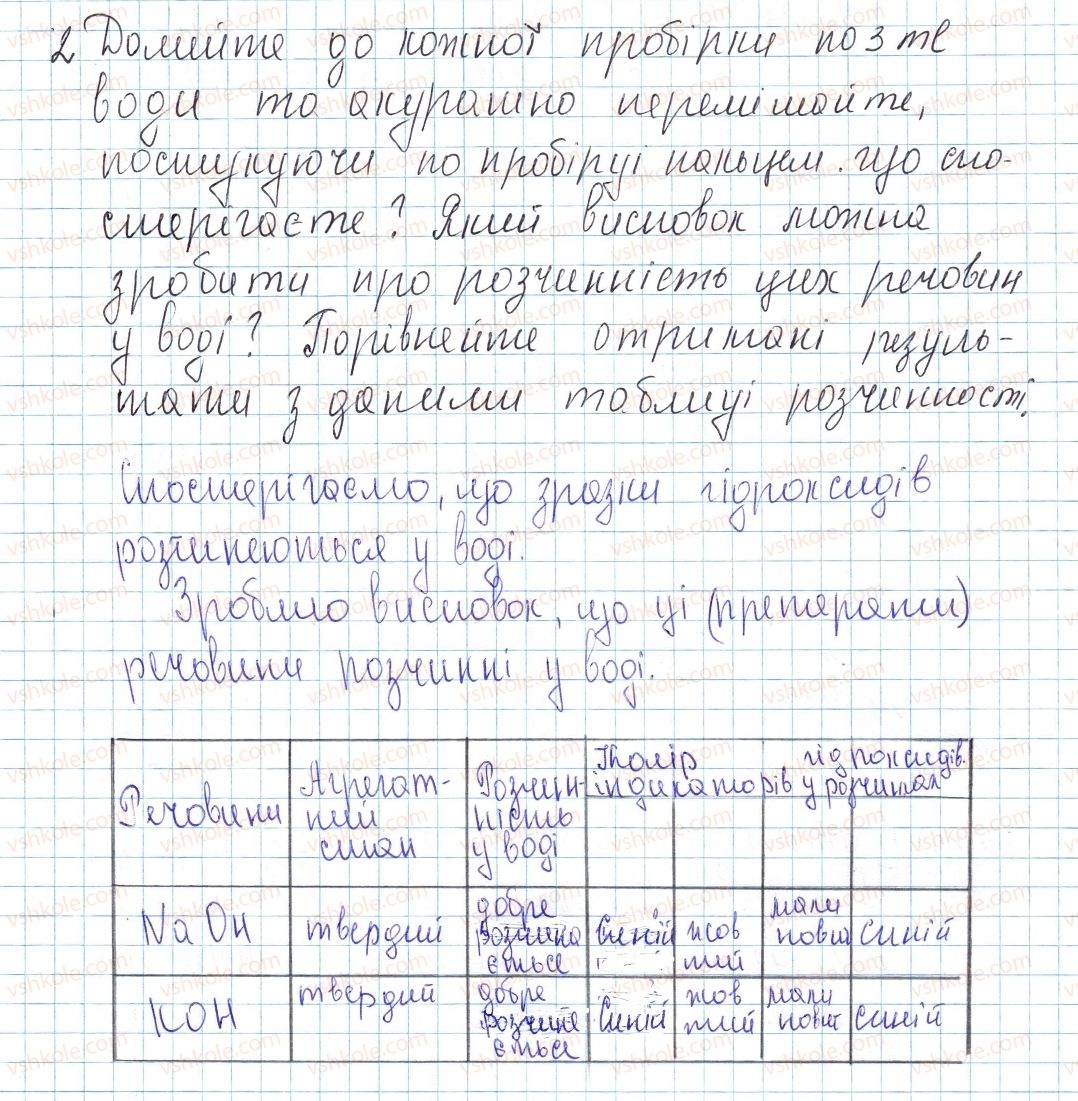 2 Долийте до кожної пробірки по 3 мл
води та акуратно перемішайте,
постукуючи по пробірці пальцем. Що спо-
стерігаєте? Який висновок можна
зробити про розчинність цих речовин
у воді? Порівняйте отримані резуль-
тати з даними таблиці розчинності.
Спостерігаємо, що зразки гідроксидів
розчиняються у воді.
Зробимо висновок, що ці (препарати)
речовини розчинні у воді.
Речовини
Агрегат-
ний
стан
Розчин-
ність
у воді
Колір гідроксидів.
індикаторів у розчинах
NaOH твердий добре розчиня ється синій жов тий мали новий синій
KOH твердий добре розчиня ється синій жов тий мали новий синій
vshkole.com